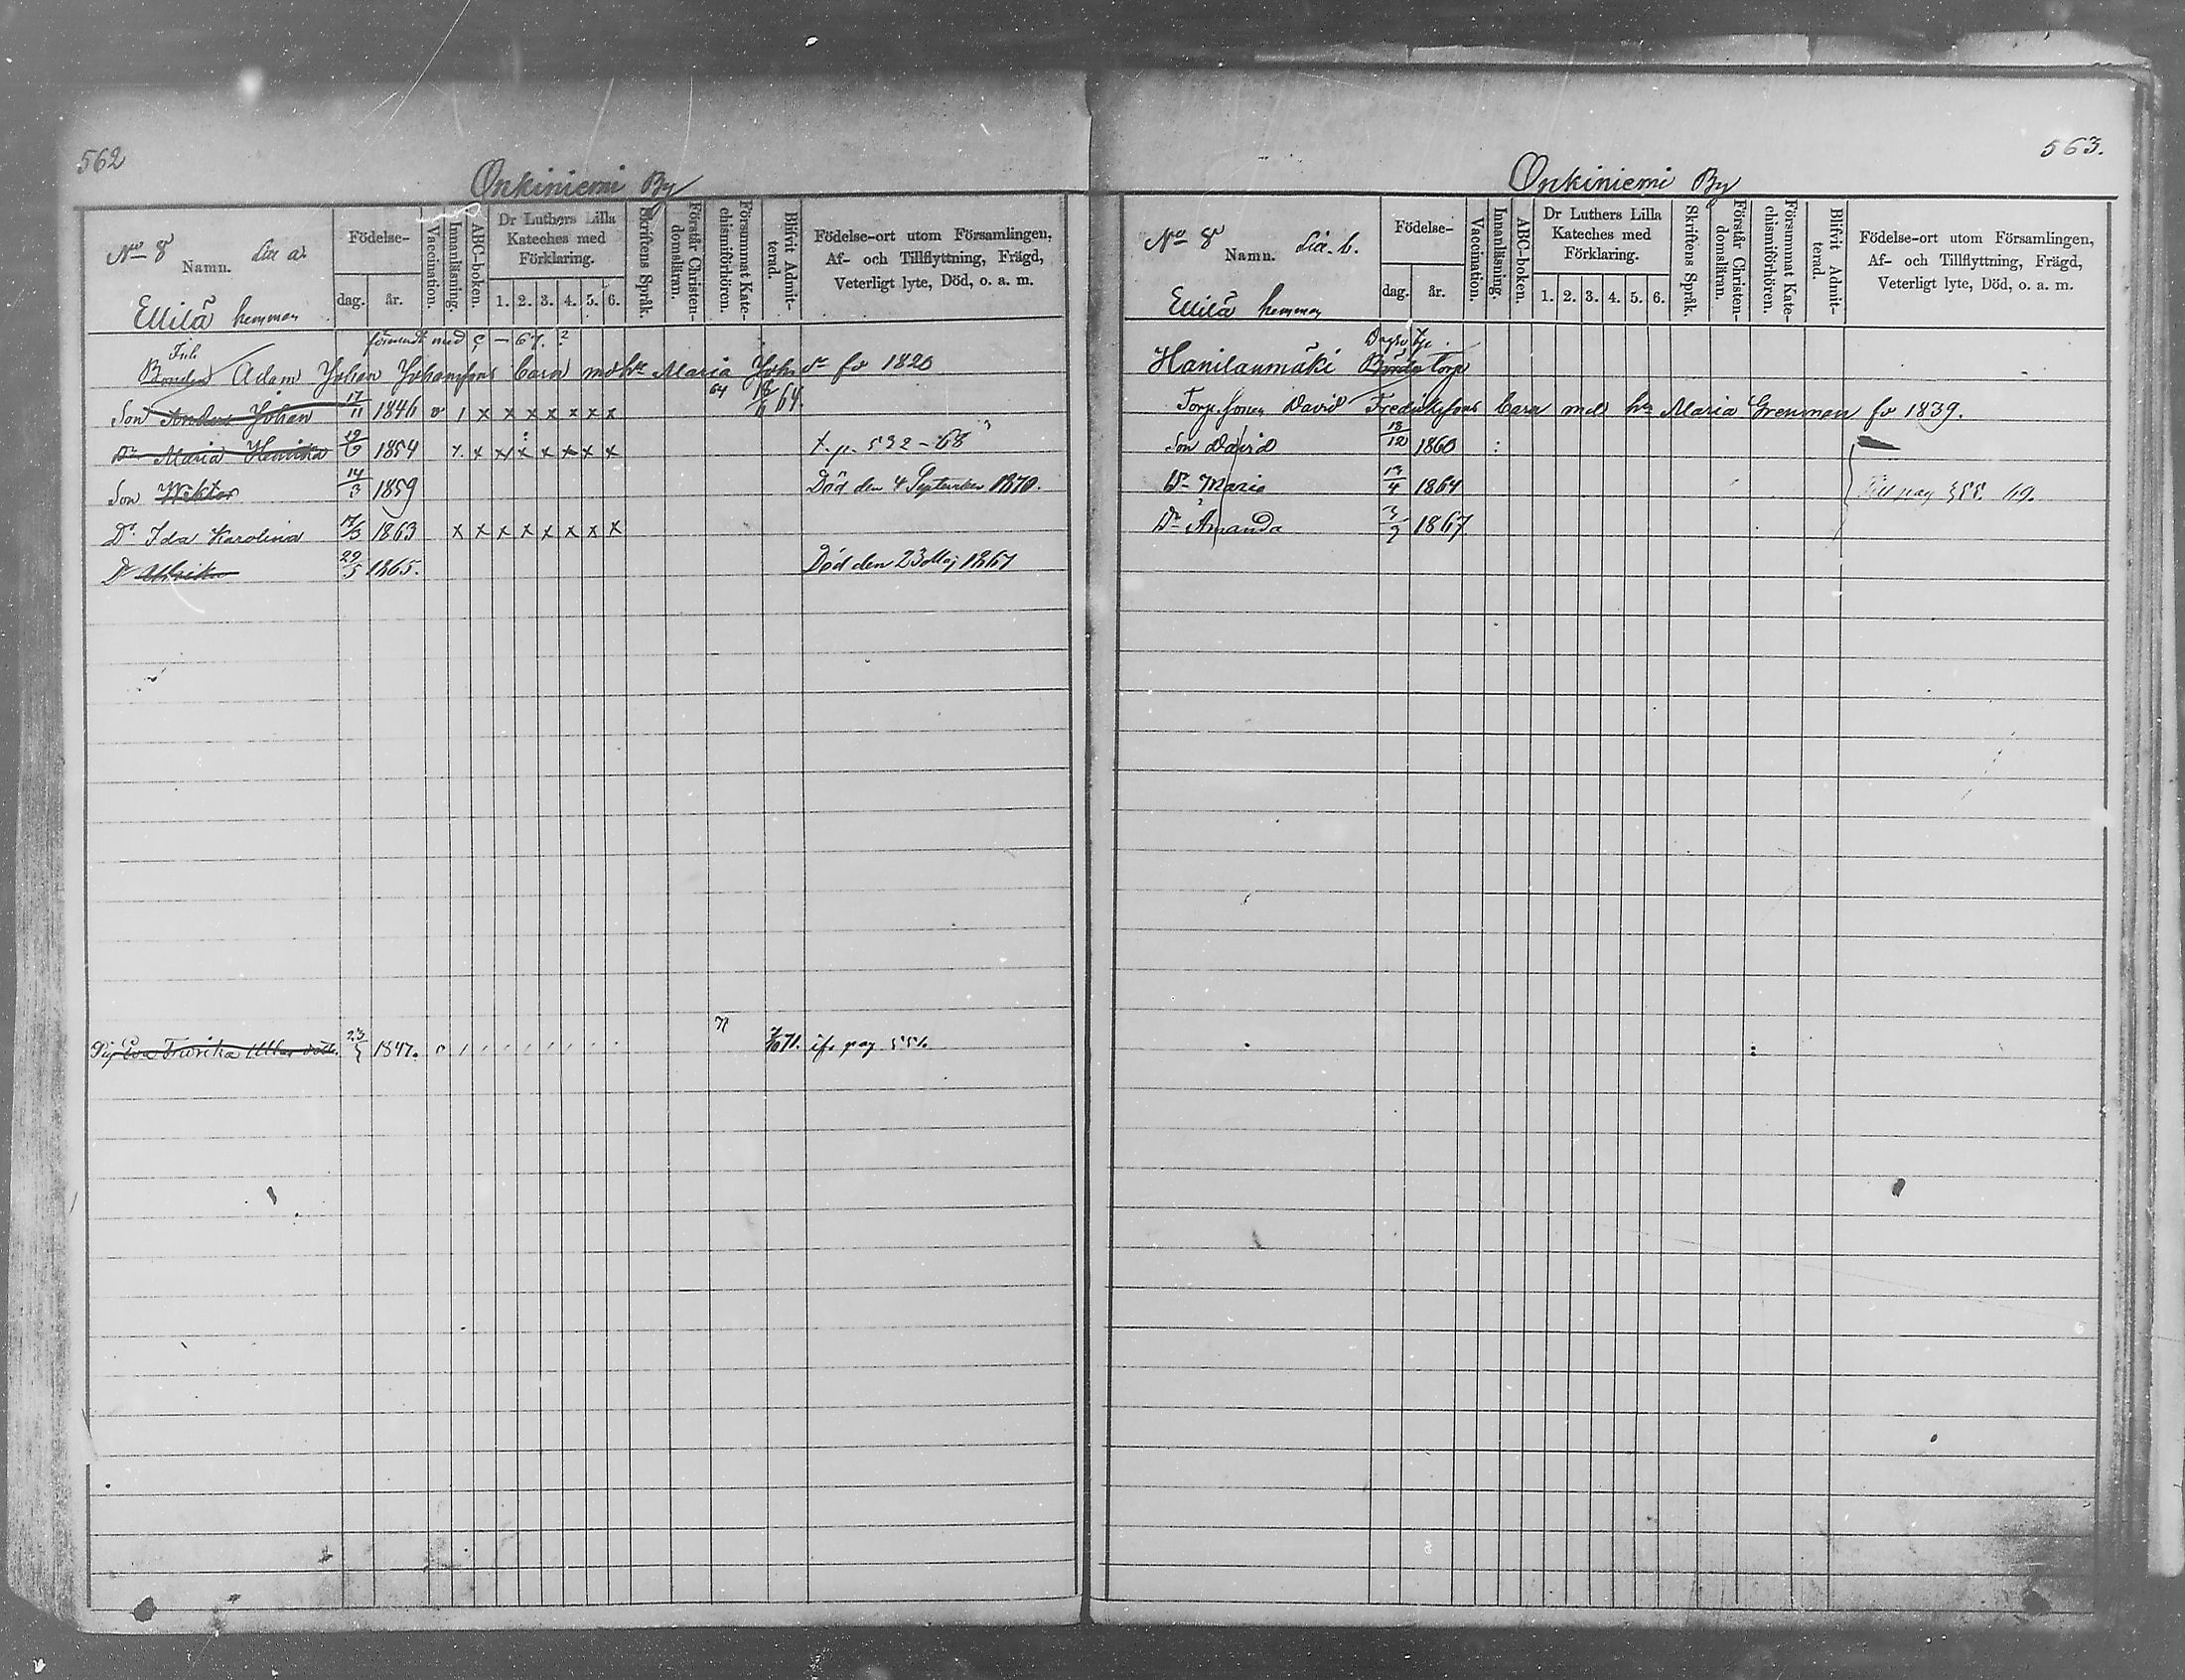 562
Onkiniemi By
No 8 Litt a.
Namn.
Födelse-
dag. år.
Vaccination.
Innanläsning.
ABC-boken.
Dr Luthers Lilla Kateches med Förklaring.
1. 2. 3. 4. 5. 6.
Skriftens Språk.
Förstår Christen-domsläran.
Försummat Kate-chismiförhören.
Blifvit Admit-terad.
Födelse-ort utom Församlingen, Af- och Tillflyttning, Frägd, Veterligt lyte, Död, o. a. m.
Ellilä hemman
med
Inh
Bonden Adam Johan Johanssons barn Maria Johs dr fö 1820
Son Johan 17/11 1846 v 1 x x x x x x x 64 64.
Dr Maria Henrika 1854 x x x x x x x t. p. 532-68
Son Wiktor 14/3 1859 Död den 4 September 1870.
Dr Ida Karolina 1863 x x x x x x x x
Dr Ulrika 29/5 1865. Död den 23 Maj 1867
Pig Eva Fredrika 23/5 1847. pag
563.
Onkiniemi By
No 8 Litt. b.
Namn.
Födelse-
dag. år.
Vaccination.
Innanläsning.
ABC-boken.
Dr Luthers Lilla Kateches med Förklaring.
1. 2. 3. 4. 5. 6.
Skriftens Språk.
Förstår Christen-domsläran.
Försummat Kate-chismiförhören.
Blifvit Admit-terad.
Födelse-ort utom Församlingen, Af- och Tillflyttning, Frägd, Veterligt lyte, Död, o. a. m.
Ellilä hemman
Hanilanmäki Torp
Torp. Sonen David Fredrikssons barn med h. Maria Grenman fö 1839.
Son David 18/12 1860
Dr Maria 13/4 1864 Till pag 69.
Dr Amanda 1867